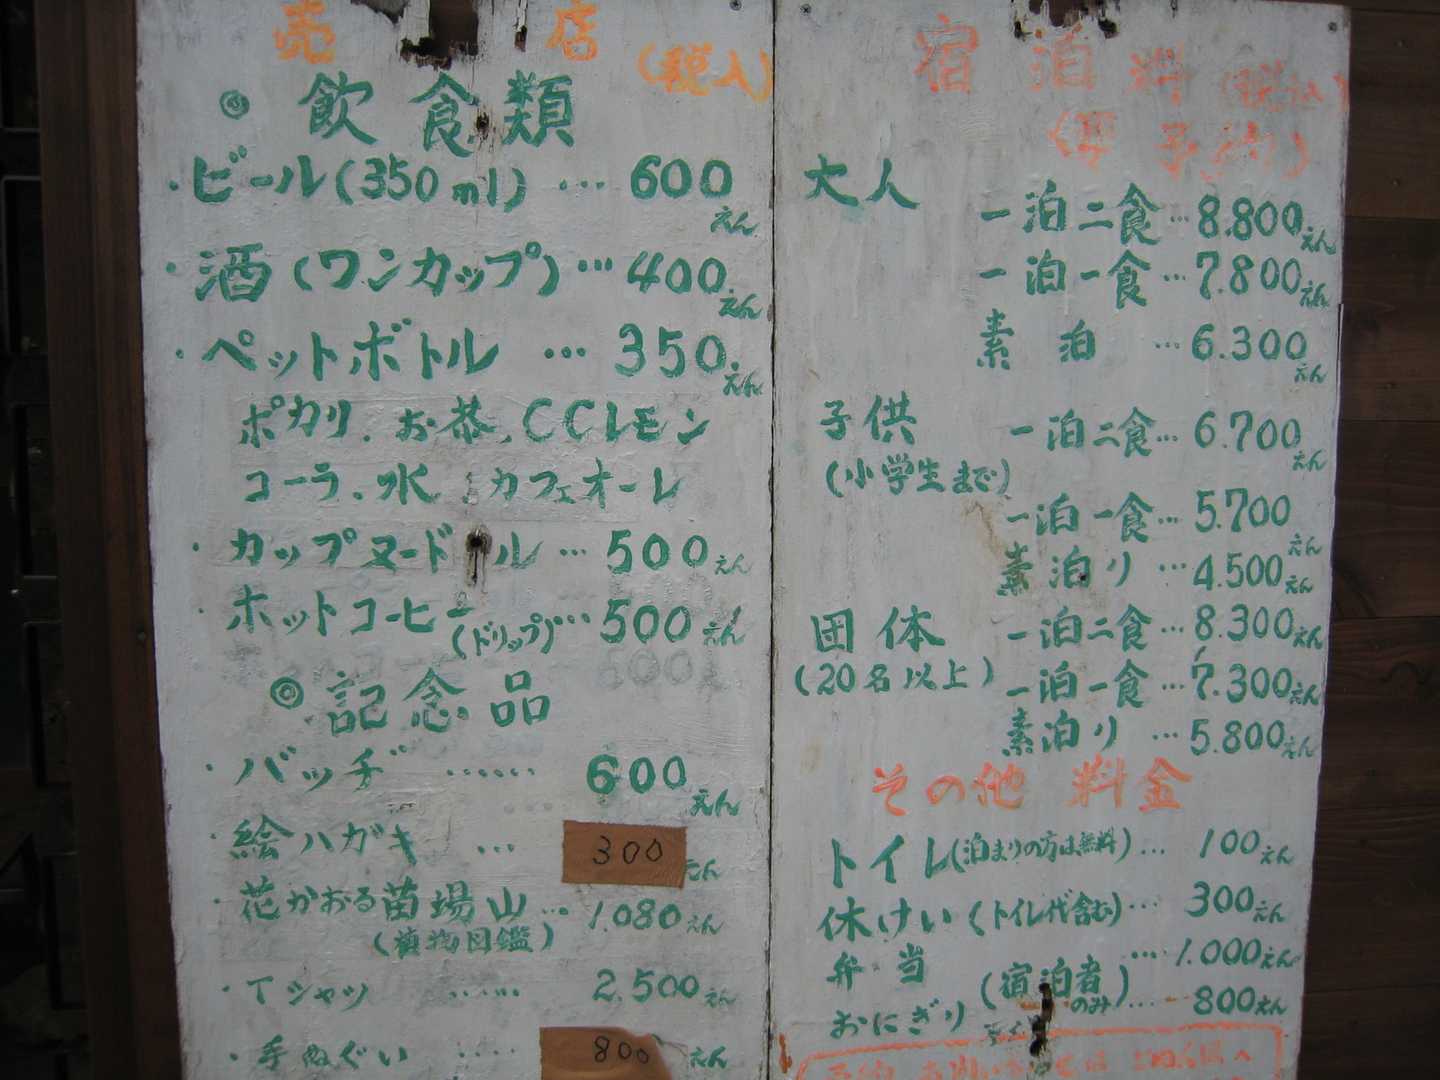 売店(税入)
◎飲食類
・ビール(350ml)…600えん
・酒(ワンカップ)…400えん
・ペットボトル…350えん
ポカリ.お茶.CCレモン
コーラ.水 カフェオーレ
・カップヌードル…500えん
・ホットコーヒー(ドリップ)…500えん
◎記念品
・バッヂ……600えん
・絵ハガキ…300えん
・花かおる苗場山…1.080えん
(植物図鑑)
・Tシャツ……2.500えん
・手ぬぐい….800えん
宿泊料(税込)
(要予約)
大人 一泊二食…8.800えん
一泊一食…7.800えん
素泊…6.300えん
子供 一泊二食…6.700えん
(小学生まで)
一泊一食…5.700えん
素泊り…4.500えん
団体 一泊二食…8.300えん
(20名以上) 一泊一食…7.300えん
素泊り…5.800えん
その他料金
トイレ(泊まりの方は無料)…100えん
休けい(トイレ代含む)…300えん
弁当….1.000えん
(宿泊者のみ)
おにぎり….800えん